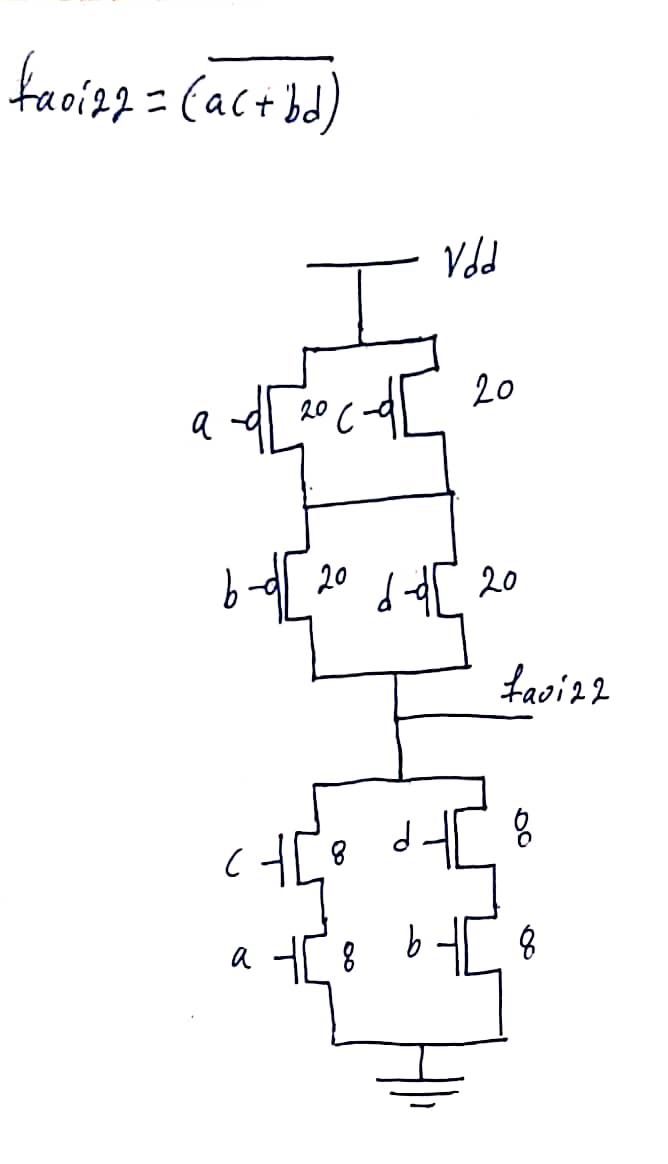 faoi22 = (ac+bd)
Vdd
a 20 c 20
b 20 d 20
faoi22
c 8 d 8
a 8 b 8